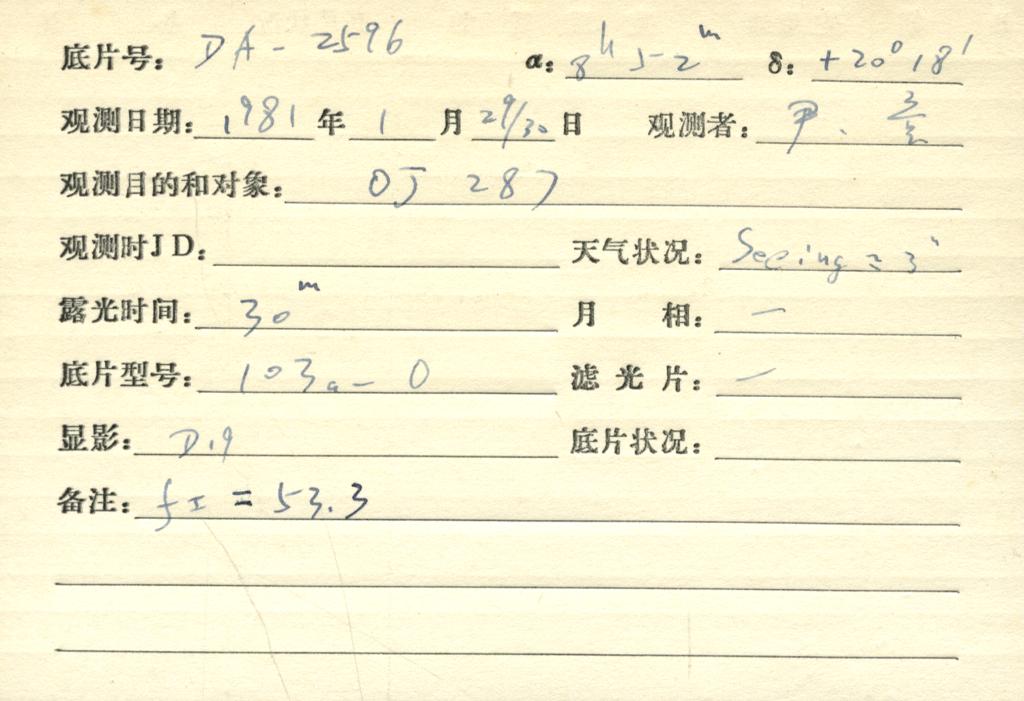 底片号: DA-2596 α: 8h 52m δ: +20°18′
观测日期: 1981 年 1 月 29/30 日 观测者:
观测目的和对象: OJ 287
观测时JD: 天气状况: Seeing = 3"
露光时间: 30m 月 相: —
底片型号: 103a-O 滤光片: —
显影: D.19 底片状况:
备注: fI = 53.3